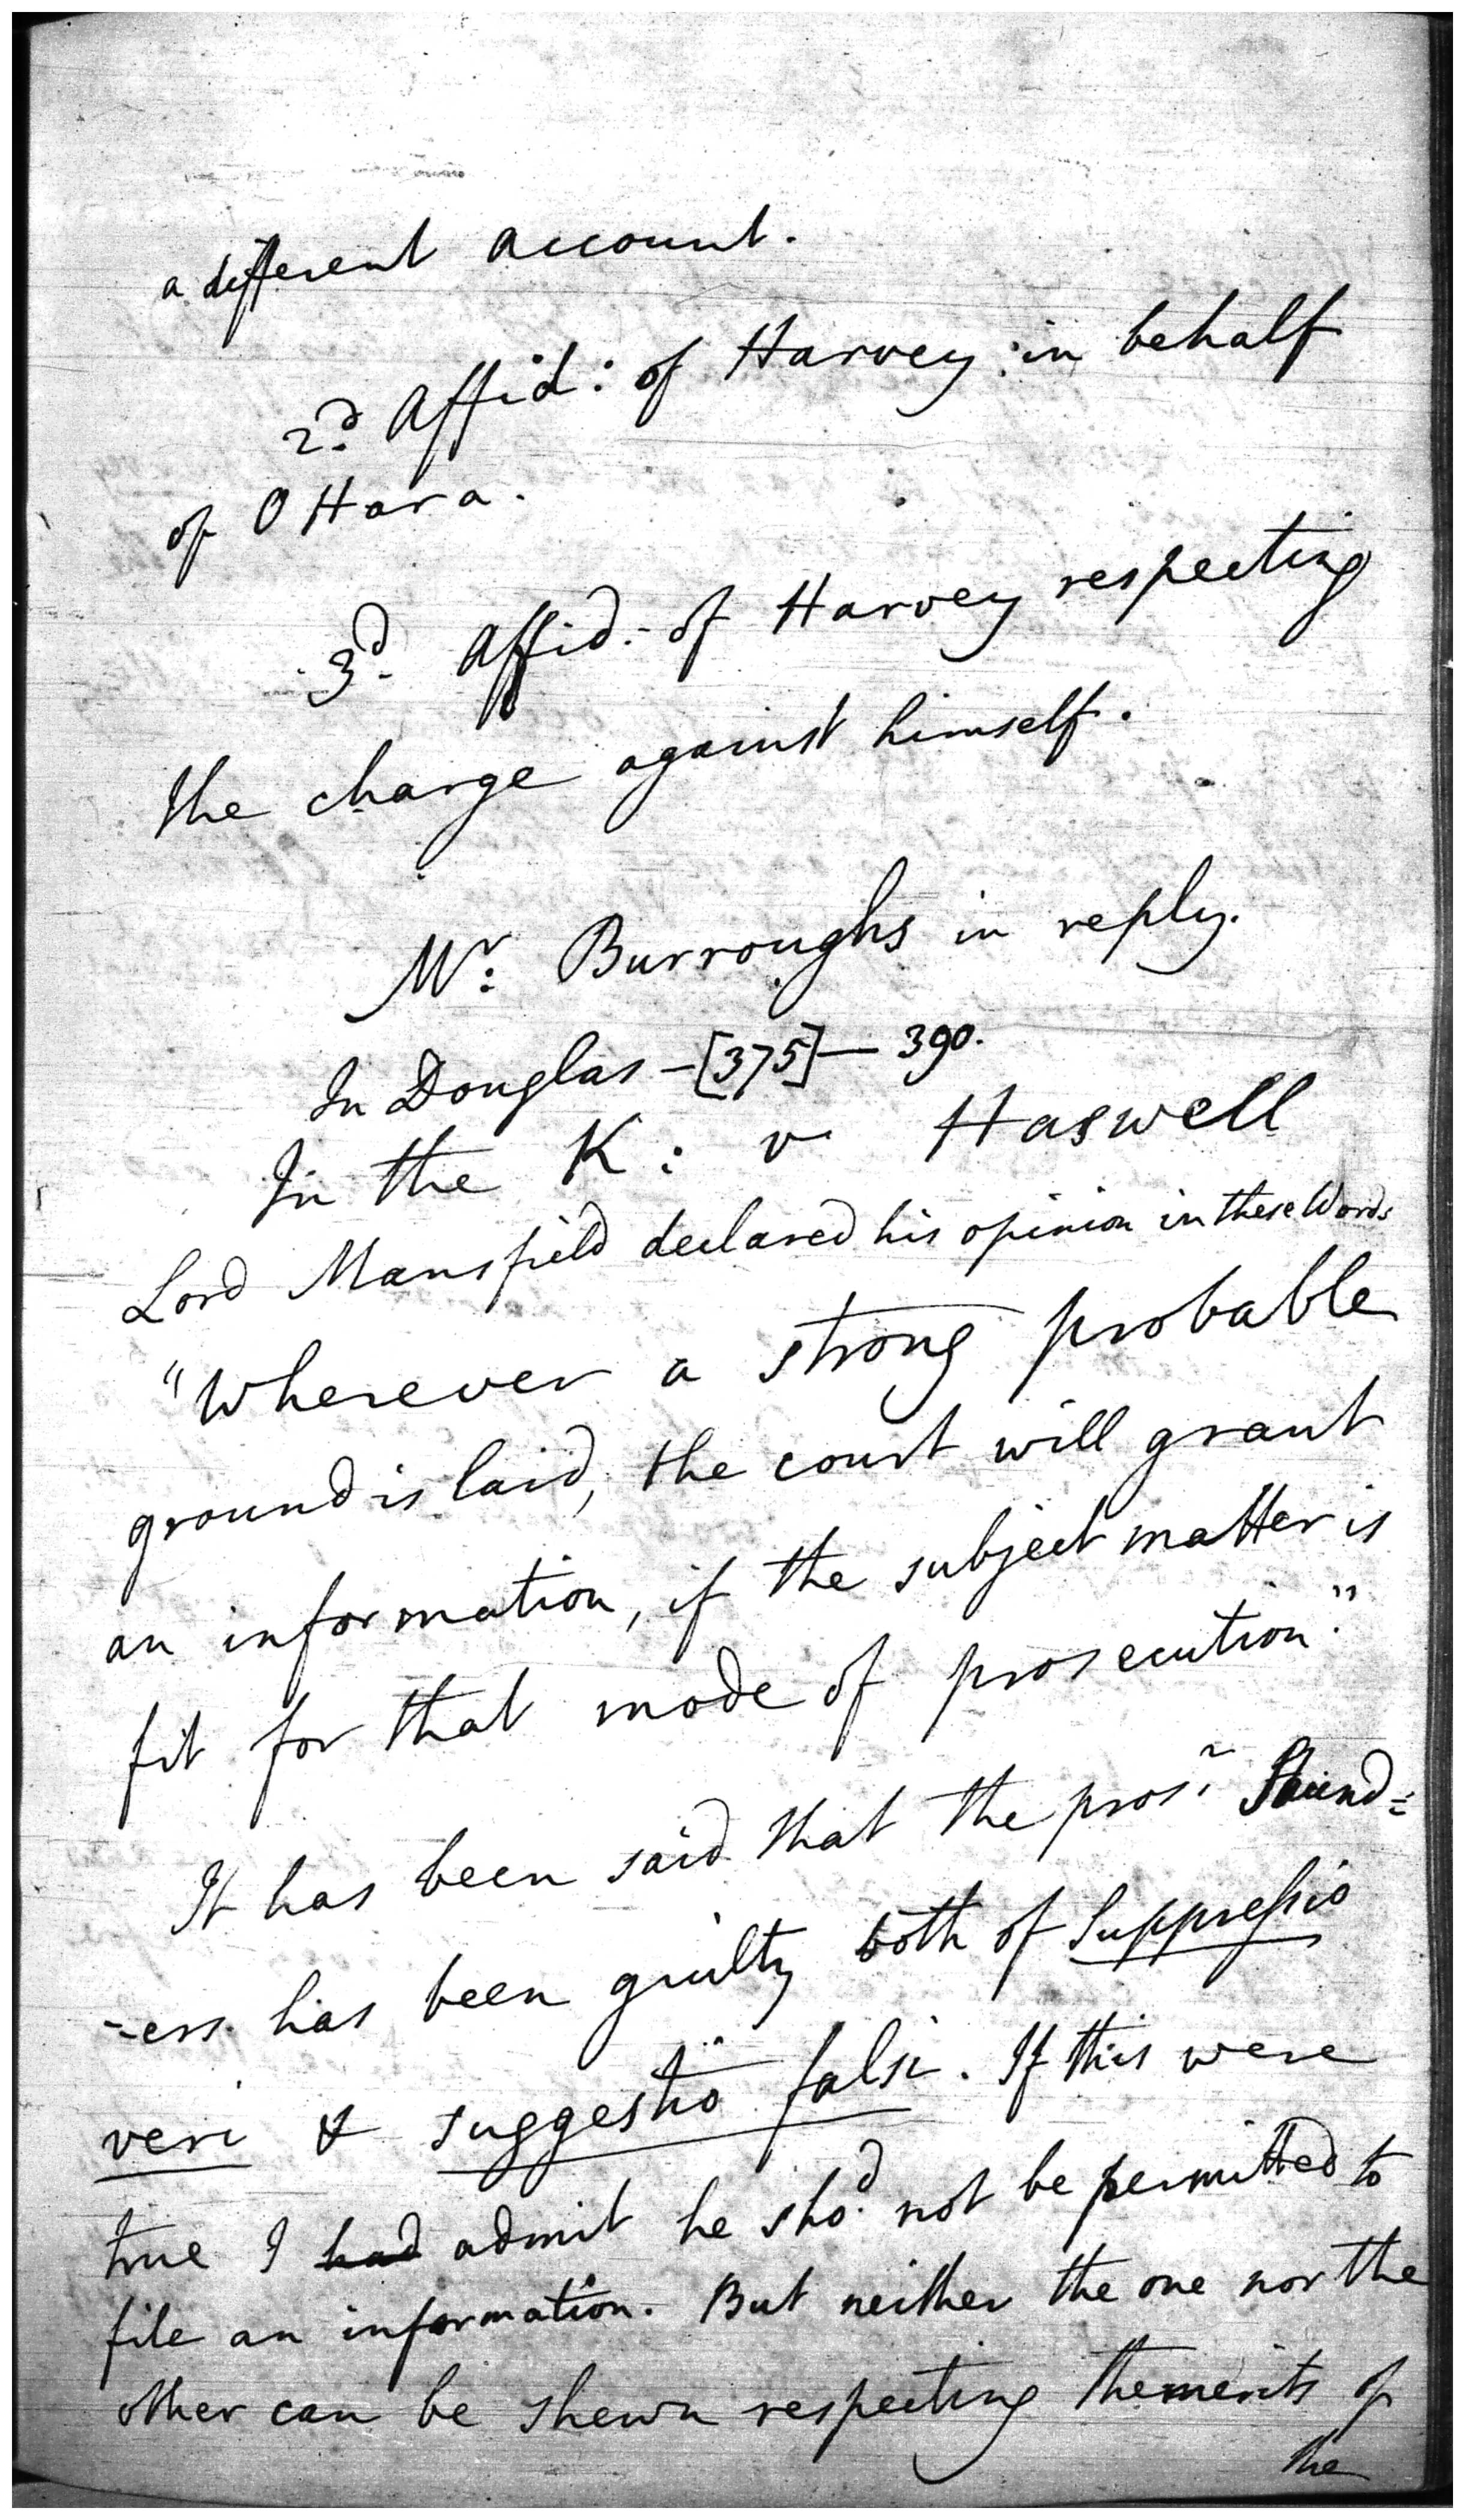 a different account.
2d. Affid: of Harvey: in behalf
of OHara.
3d. Affid:- of Harvey respecting
the charge against himself.
Mr: Burroughs in reply.
In Douglas - [375] — 390.
In the K: v Haswell
Lord Mansfield declared his opinion in these Words
"Wherever a strong probable
ground is laid, the court will grant
an information, if the subject matter is
fit for that mode of prosecution."
It has been said that the prosr
-ess has been guilty both of Suppressio
veri & suggestio falsi. If this were
true I had admit he shod. not be permitted to
file an information. But neither the one nor the
other can be shewn respecting the merits of
the